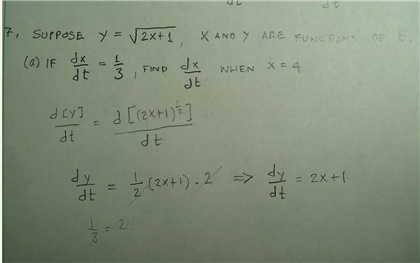 7, SUPPOSE y = √(2x+1), X AND Y ARE FUNCTIONS OF t.
(a) IF dx/dt = 1/3, FIND dx/dt WHEN X = 4
d[y]/dt = d[(2x+1)^(1/2)]/dt
dy/dt = 1/2 (2x+1) · 2 ⇒ dy/dt = 2x+1
1/3 = 2